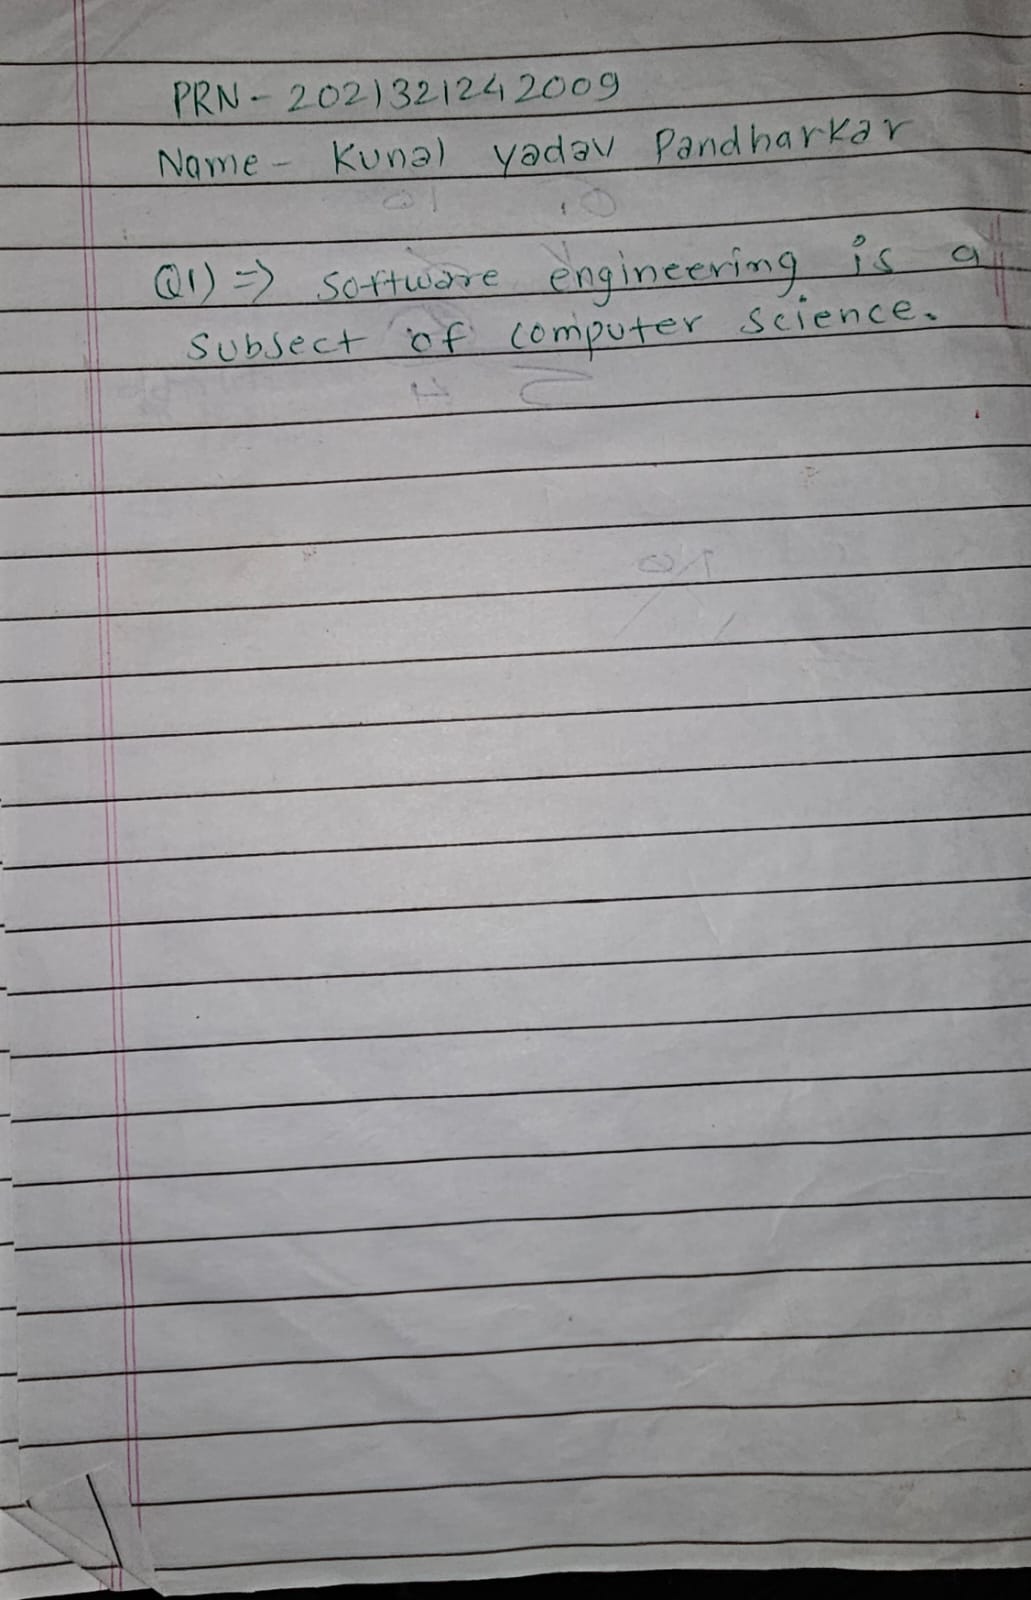 PRN - 2021321242009
Name - Kunal yadav Pandharkar
Q1) => software engineering is a
subsect of computer science.